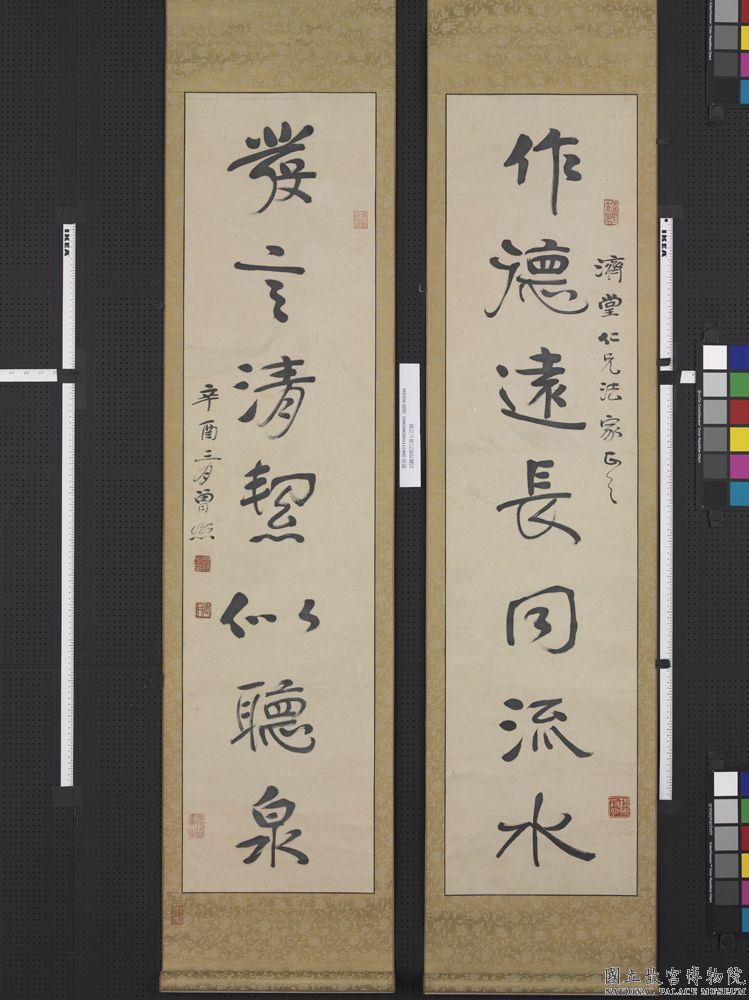 作德遠長同流水
濟堂仁兄法家正之
發言清絜似聽泉
辛酉二月曾熙
IKEA
IKEA
國立故宮博物院
NATIONAL PALACE MUSEUM